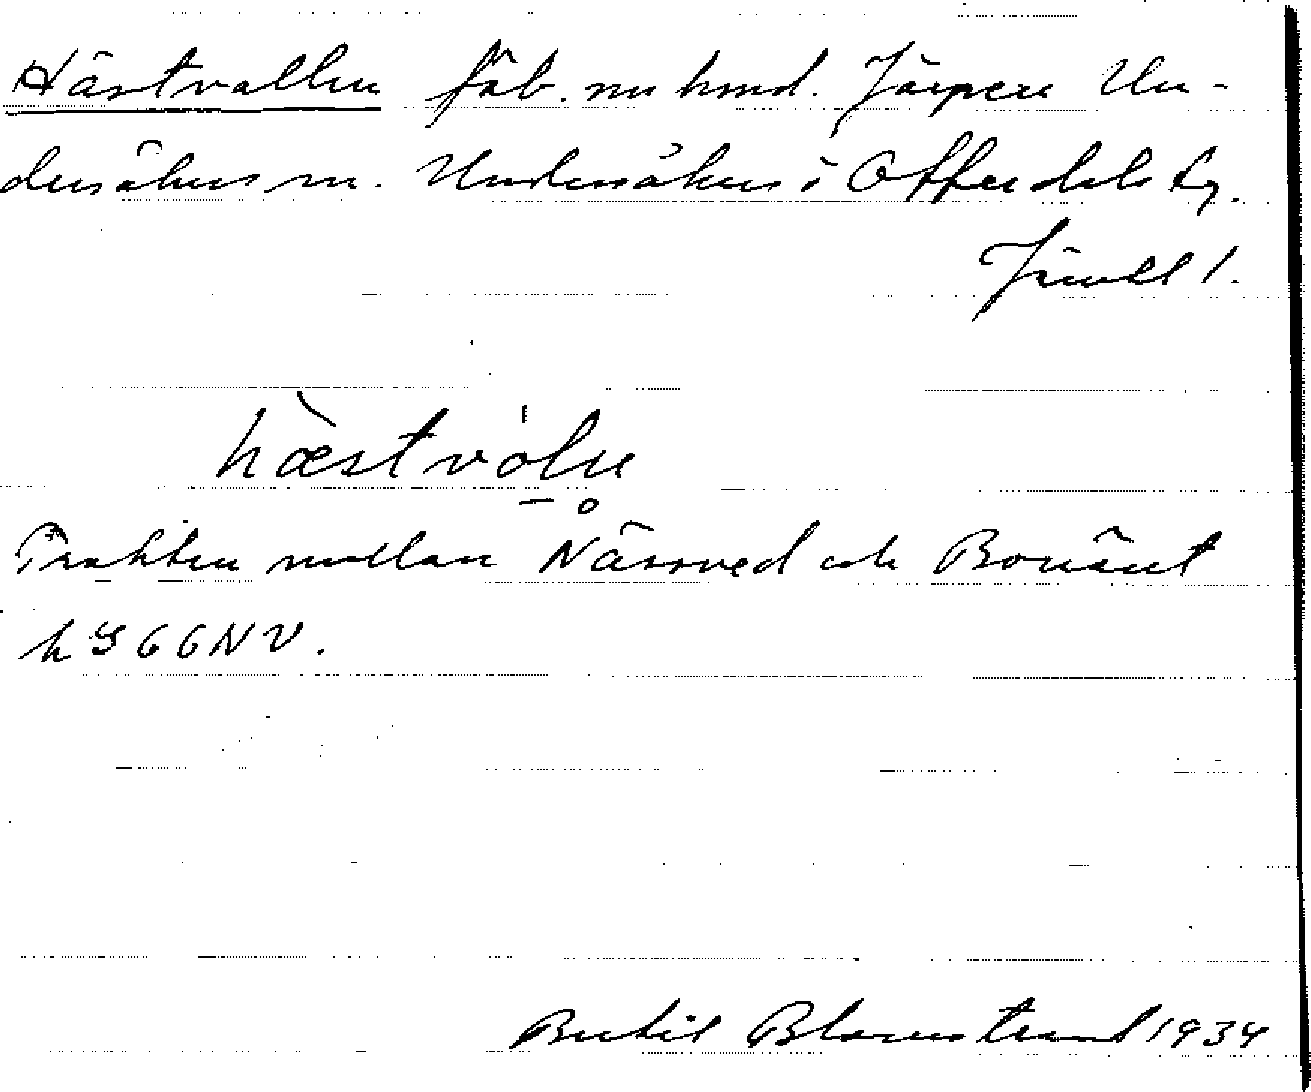 Hästvallen fäb. nu hmd. Järpen Un-
dersåkers sn. Undersåkers i Offerdals tg.
Jämtl l.
hæstvòln̥
Trakten mellan Närsved och
h S 66 NV.
Bertil Blomstrand 1934